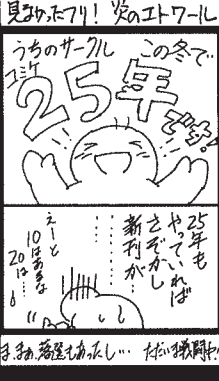 見なかったフリ! 炎のエトワール
この冬で
うちのサークル
コミケ
25年
です!
25年も
やっていれば
さぞかし
新刊が…
‥‥‥
えーと
10はあるな
20は…
ま、まぁ、落選もあったし… ただいま戦闘中!